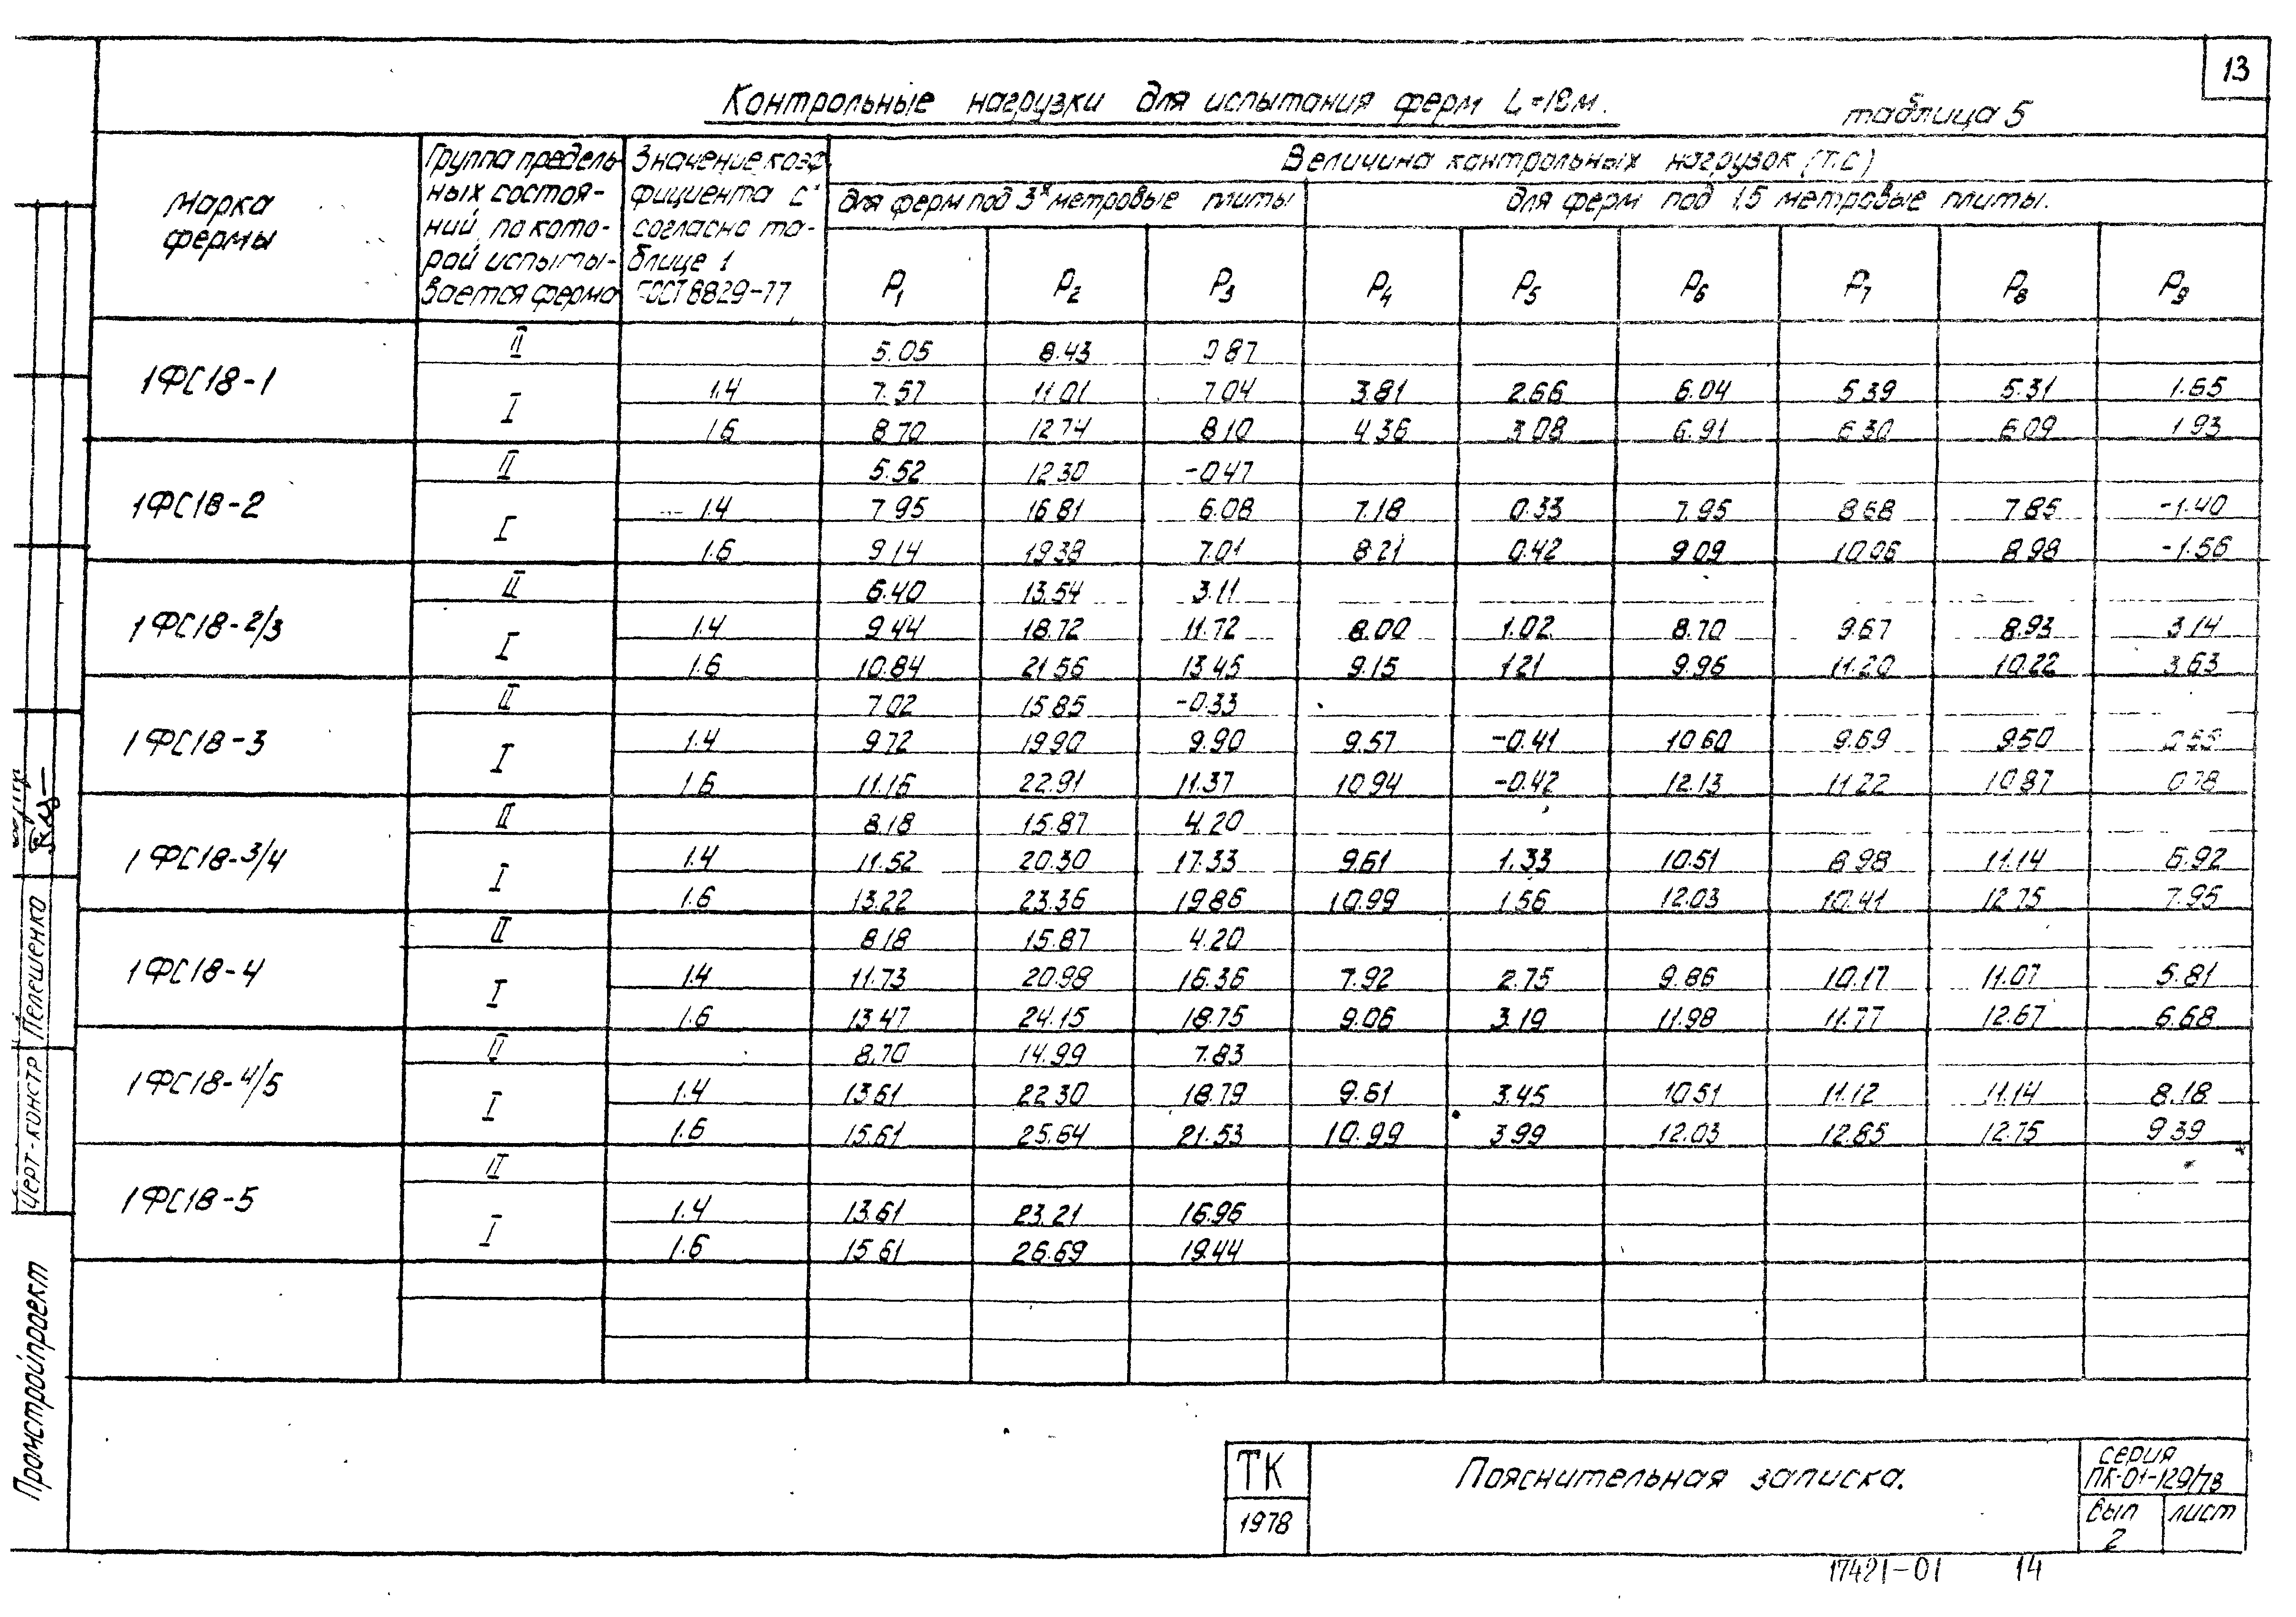 13
Контрольные нагрузки для испытания ферм L=18м.
таблица 5
Марка фермы
Группа предель-
ных состоя-
ний, по кото-
рой испыты-
вается ферма
Значение коэф
фициента С
согласно та-
блице 1
ГОСТ 8829-77
Величина контрольных нагрузок (т.с)
для ферм под 3х метровые плиты
для ферм под 1,5 метровые плиты.
P1 P2 P3 P4 P5 P6 P7 P8 P9
1ФС18-1
II 5.05 8.43 0.87
I 1.4 7.57 11.01 7.04 3.81 2.66 6.04 5.39 5.31 1.65
1.6 8.70 12.74 8.10 4.36 3.08 6.91 6.30 6.09 1.93
1ФС18-2
II 5.52 12.30 -0.47
I 1.4 7.95 16.81 6.08 7.18 0.33 7.95 8.68 7.85 -1.40
1.6 9.14 19.38 7.01 8.21 0.42 9.09 10.06 8.98 -1.56
1ФС18-2/3
II 6.40 13.54 3.11
I 1.4 9.44 18.72 11.72 8.00 1.02 8.70 9.67 8.93 3.14
1.6 10.84 21.56 13.45 9.15 1.21 9.96 11.20 10.22 3.63
1ФС18-3
II 7.02 15.85 -0.33
I 1.4 9.72 19.90 9.90 9.57 -0.41 10.60 9.69 9.50
1.6 11.16 22.91 11.37 10.94 -0.42 12.13 11.22 10.87 0.78
1ФС18-3/4
II 8.18 15.87 4.20
I 1.4 11.52 20.30 17.33 9.61 1.33 10.51 8.98 11.14 6.92
1.6 13.22 23.36 19.86 10.99 1.56 12.03 10.41 12.75 7.95
1ФС18-4
II 8.18 15.87 4.20
I 1.4 11.73 20.98 16.36 7.92 2.75 9.86 10.17 11.07 5.81
1.6 13.47 24.15 18.75 9.06 3.19 11.98 11.77 12.67 6.68
1ФС18-4/5
II 8.70 14.99 7.83
I 1.4 13.61 22.30 18.79 9.61 3.45 10.51 11.12 11.14 8.18
1.6 15.61 25.64 21.53 10.99 3.99 12.03 12.85 12.75 9.39
1ФС18-5
II
I 1.4 13.61 23.21 16.96
1.6 15.61 26.69 19.44
Черт.-констр Пелешенко
Промстройпроект
ТК
1978
Пояснительная записка.
серия
ПК-01-129/78
вып
2
лист
17421-01 14